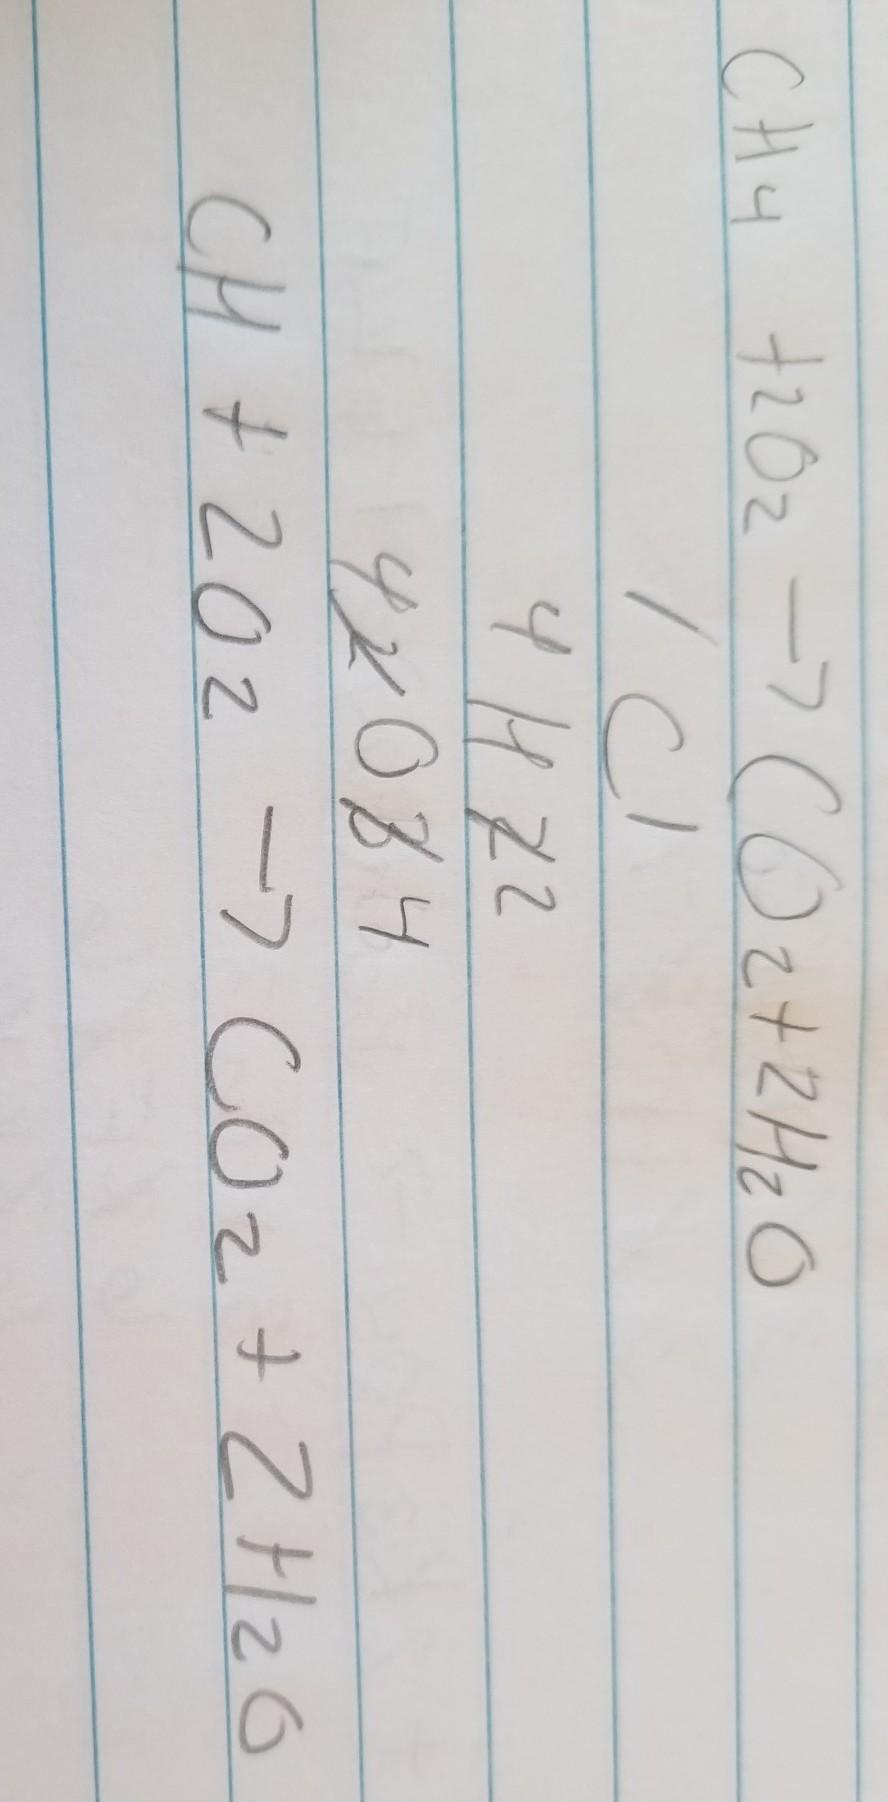 CH4 +2O2 → CO2+2H2O
1 C 1
4 H 2 2
4 2 O 3 4
CH + 2O2 → CO2 + 2H2O